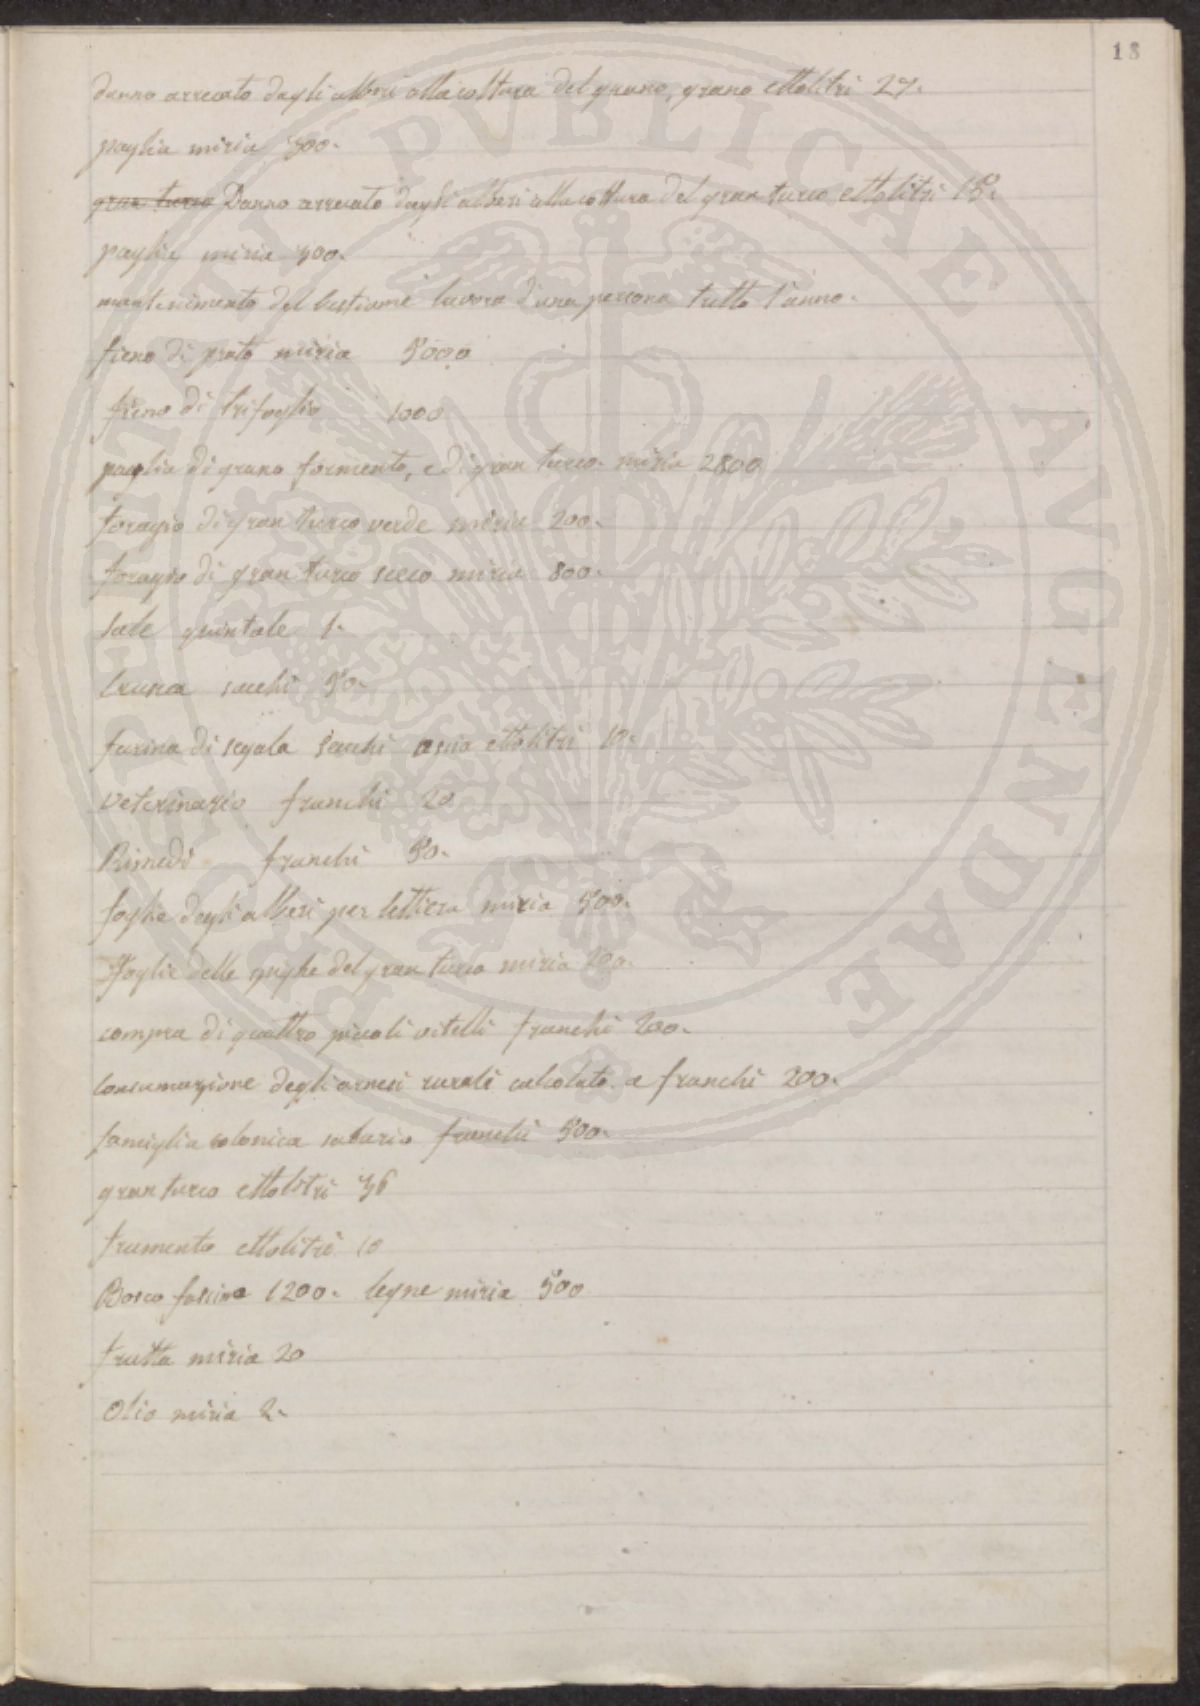 18
danno arrecato dagli alberi alla coltura del grano, grano ettolitri 27.
paglia miria 300.
gran turco Danno arrecato dagli alberi alla coltura del gran turco ettolitri 15.
paglia miria 300.
mantenimento del bestiame lavora d'una persona tutto l'anno.
fieno di prato miria 5000
fieno di trifoglio 1000
paglia di grano formento, e di gran turco miria 2800
foragio di gran turco verde miria 200.
foragio di gran turco secco miria 800.
Sale quintale 1.
Crusca sacchi 50.
farina di segala sacchi ossia ettolitri 10.
veterinario franchi 20
Rimedi franchi 50.
foglie degli alberi per lettiera miria 500.
foglie delle spighe del gran turco miria 200.
compra di quattro piccoli vitelli franchi 200.
Consumazione degli arnesi rurali calcolato a franchi 200.
famiglia colonica salario franchi 500.
gran turco ettolitri 36
frumento ettolitri 10
Bosco fascine 1200. legne miria 500
frutta miria 20
Olio miria 2.
REI PVBLICAE AVGENDAE